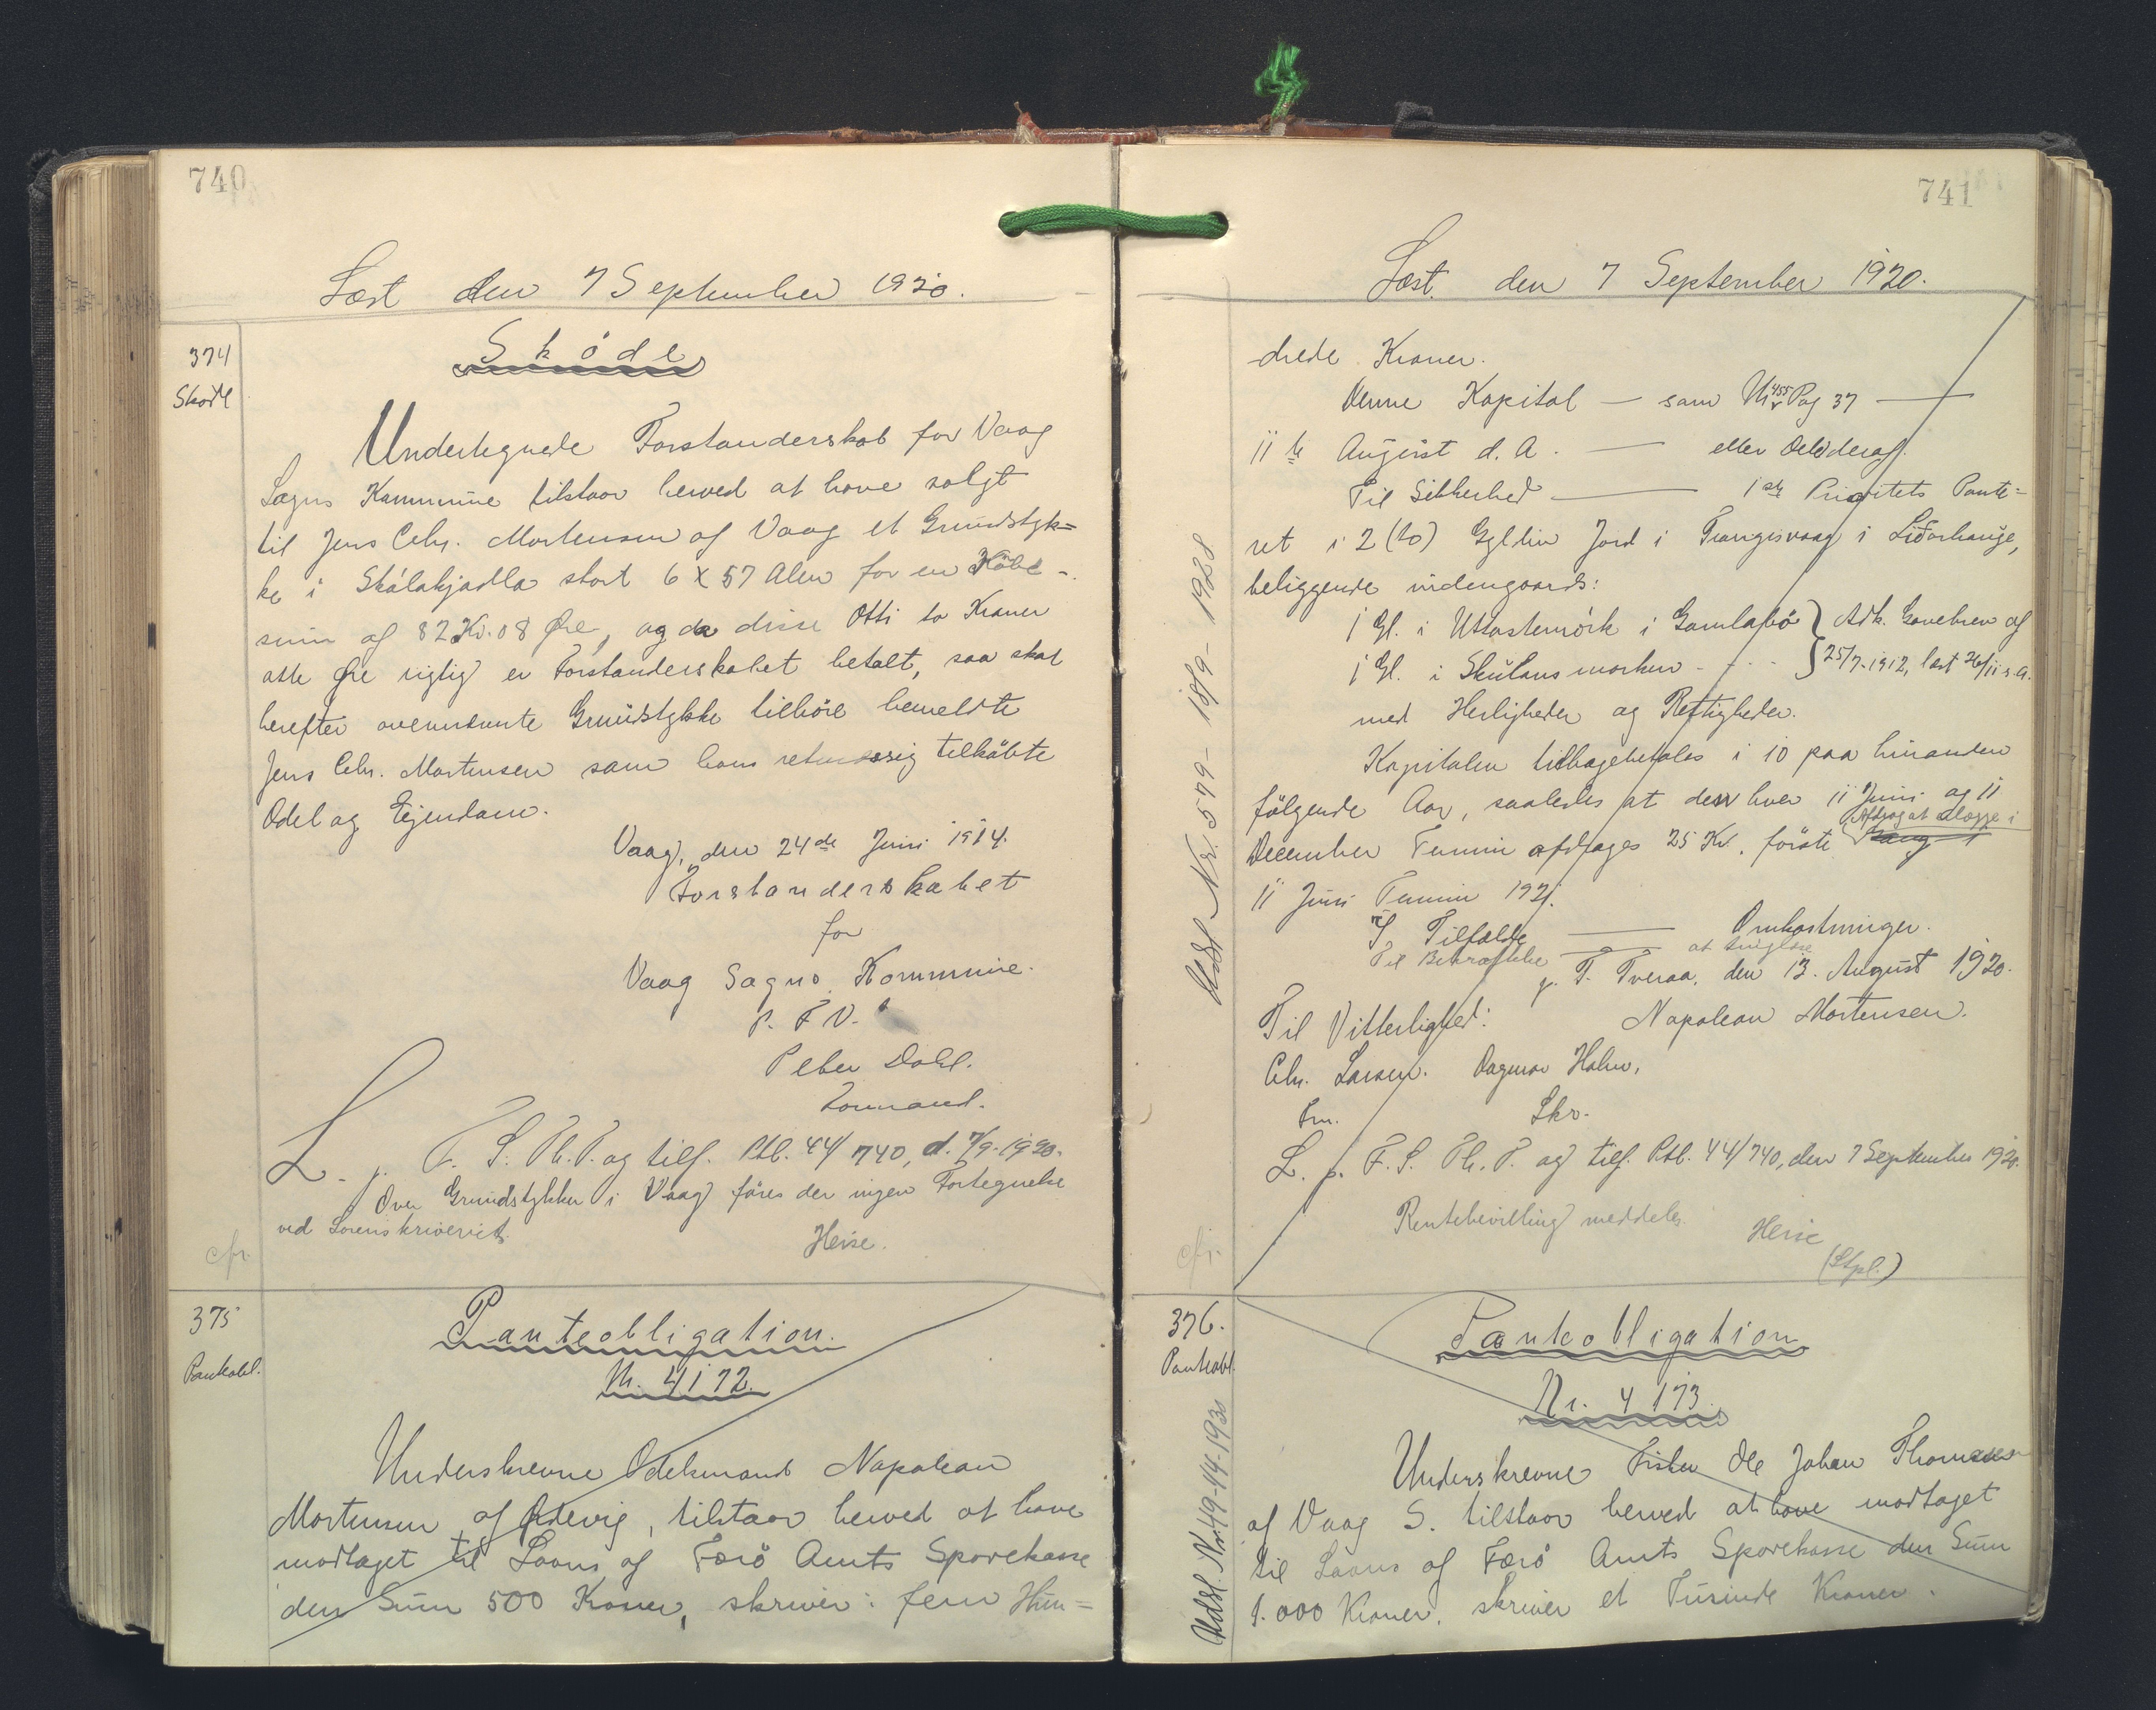 740
Læst den 7 September 1920.
374
Skøde
Sköde
Undertegnede Forstanderskab for Vaag
Sogns Kommune tilstaar herved at have solgt
til Jens Chr. Mortensen af Vaag et Grundstyk=
ke i Skálakjadla stort 6 x 57 Alen for en Købe-
sum af 82 Kr. 08 Øre, og da disse Otti to Kroner
otte Øre rigtig er Forstanderskabet betalt, saa skal
herefter ovennævnte Grundstykke tilhöre bemeldte
Jens Chr. Mortensen som hans retmæssig tilköbte
Odel og Ejendom.
Vaag, den 24de Juni 1914.
Forstanderskabet
for
Vaag Sogns Kommune.
P. F. V.
Peter Dahl.
Formand.
L. p. F. S. Th. T. og tilf. Ptb. 44/740, d. 7/9-1920.
Over Grundstykker i Vaag föres der ingen Fortegnelse
ved Sorenskriveriet.
Heise.
cfr.
375
Panteobl.
Panteobligation.
Nr. 4172.
Underskrevne Odelsmand Napolean
Mortensen af Ördevig, tilstaar herved at have
modtaget til Laans af Færö Amts Sparekasse
den Sum 500 Kroner, skriver: fem Hun=
741
Læst den 7 September 1920.
drede Kroner.
Denne Kapital — som Nr 455 Pag 37 —
11te August d. A. — eller Del deraf.
Til Sikkerhed — 1ste Prioritets Pante=
ret i 2 (to) Gyldin Jord i Trangisvaag i Lidarhauge,
beliggende indengaards:
1 Gl. i Uttastemörk i Gamlabö } Adk. Gavebrev af
1 Gl. i Skúlans morken - - - } 25/7-1912, læst 26/11 s.A.
med Herligheder og Rettigheder.
Kapitalen tilbagebetales i 10 paa hinanden
fölgende Aar, saaledes at der hver 11 Juni og 11
December Termin afdrages 25 Kr. förste Afdrag at erlægge i
11 Juni Termin 1921.
I Tilfælde — Omkostninger.
Til Bekræftelse — at tinglæse
p. T. Tveraa, den 13. August 1920.
Til Vitterlighed: Napolean Mortensen.
Chr. Larsen. Dagmar Holm,
Fm. Skr.
L. p. F. S. Th. T. og tilf. Ptb. 44/740, den 7 September 1920.
Rentebevilling meddeles.
Heise
(Stpl.)
cfr.
Udsl. Nr. 579- 18/9- 1928
376.
Panteobl.
Panteobligation
Nr. 4173.
Underskrevne Fisker Ole Johan Thomsen
af Vaag S. tilstaar herved at have modtaget
til Laans af Færö Amts Sparekasse den Sum
1.000 Kroner, skriver et Tusinde Kroner.